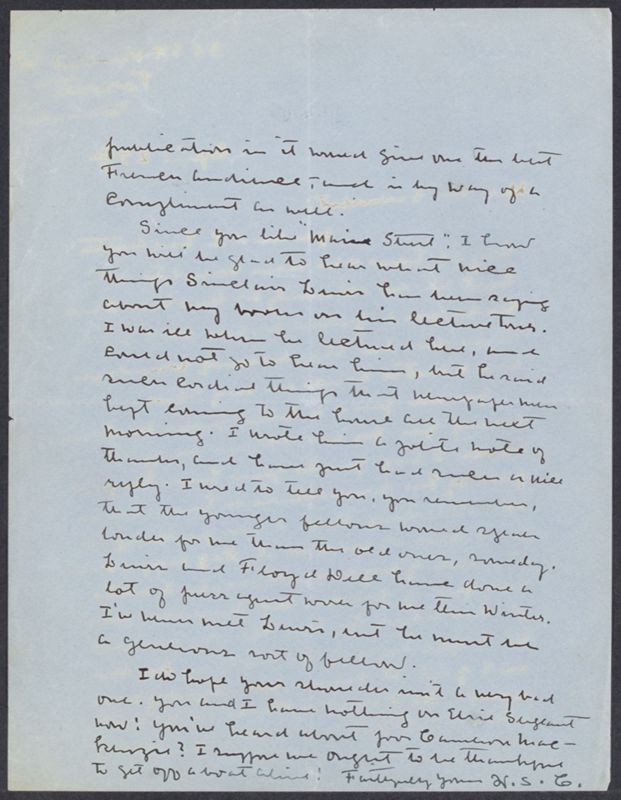 publication in it would give one the best
French audience, and is by way of a
Compliment as well.
Since you like "Maine Street", I know
you will be glad to hear what nice
things Sinclair Lewis has been saying
about my work on his lecture tour.
I was ill when he lectured here, and
could not go to hear him, but he said
such cordial things that newspaper men
kept coming to the house all the next
morning. I wrote him a polite note of
thanks, and have just had such a nice
reply. I used to tell you, you remember,
that the younger fellows would speak
louder for me than the old ones, someday.
Lewis and Floyd Dell have done a
lot of press agent work for me this Winter.
I've never met Lewis, but he must be
a generous sort of fellow.
I do hope your shoulder isn't a very bad
one. You and I have nothing on Elsie Sergeant
now! You've heard about poor Cameron Mac-
kenzie? I suppose we ought to be thankful
to get off a boat alive! Faithfully yours W. S. C.